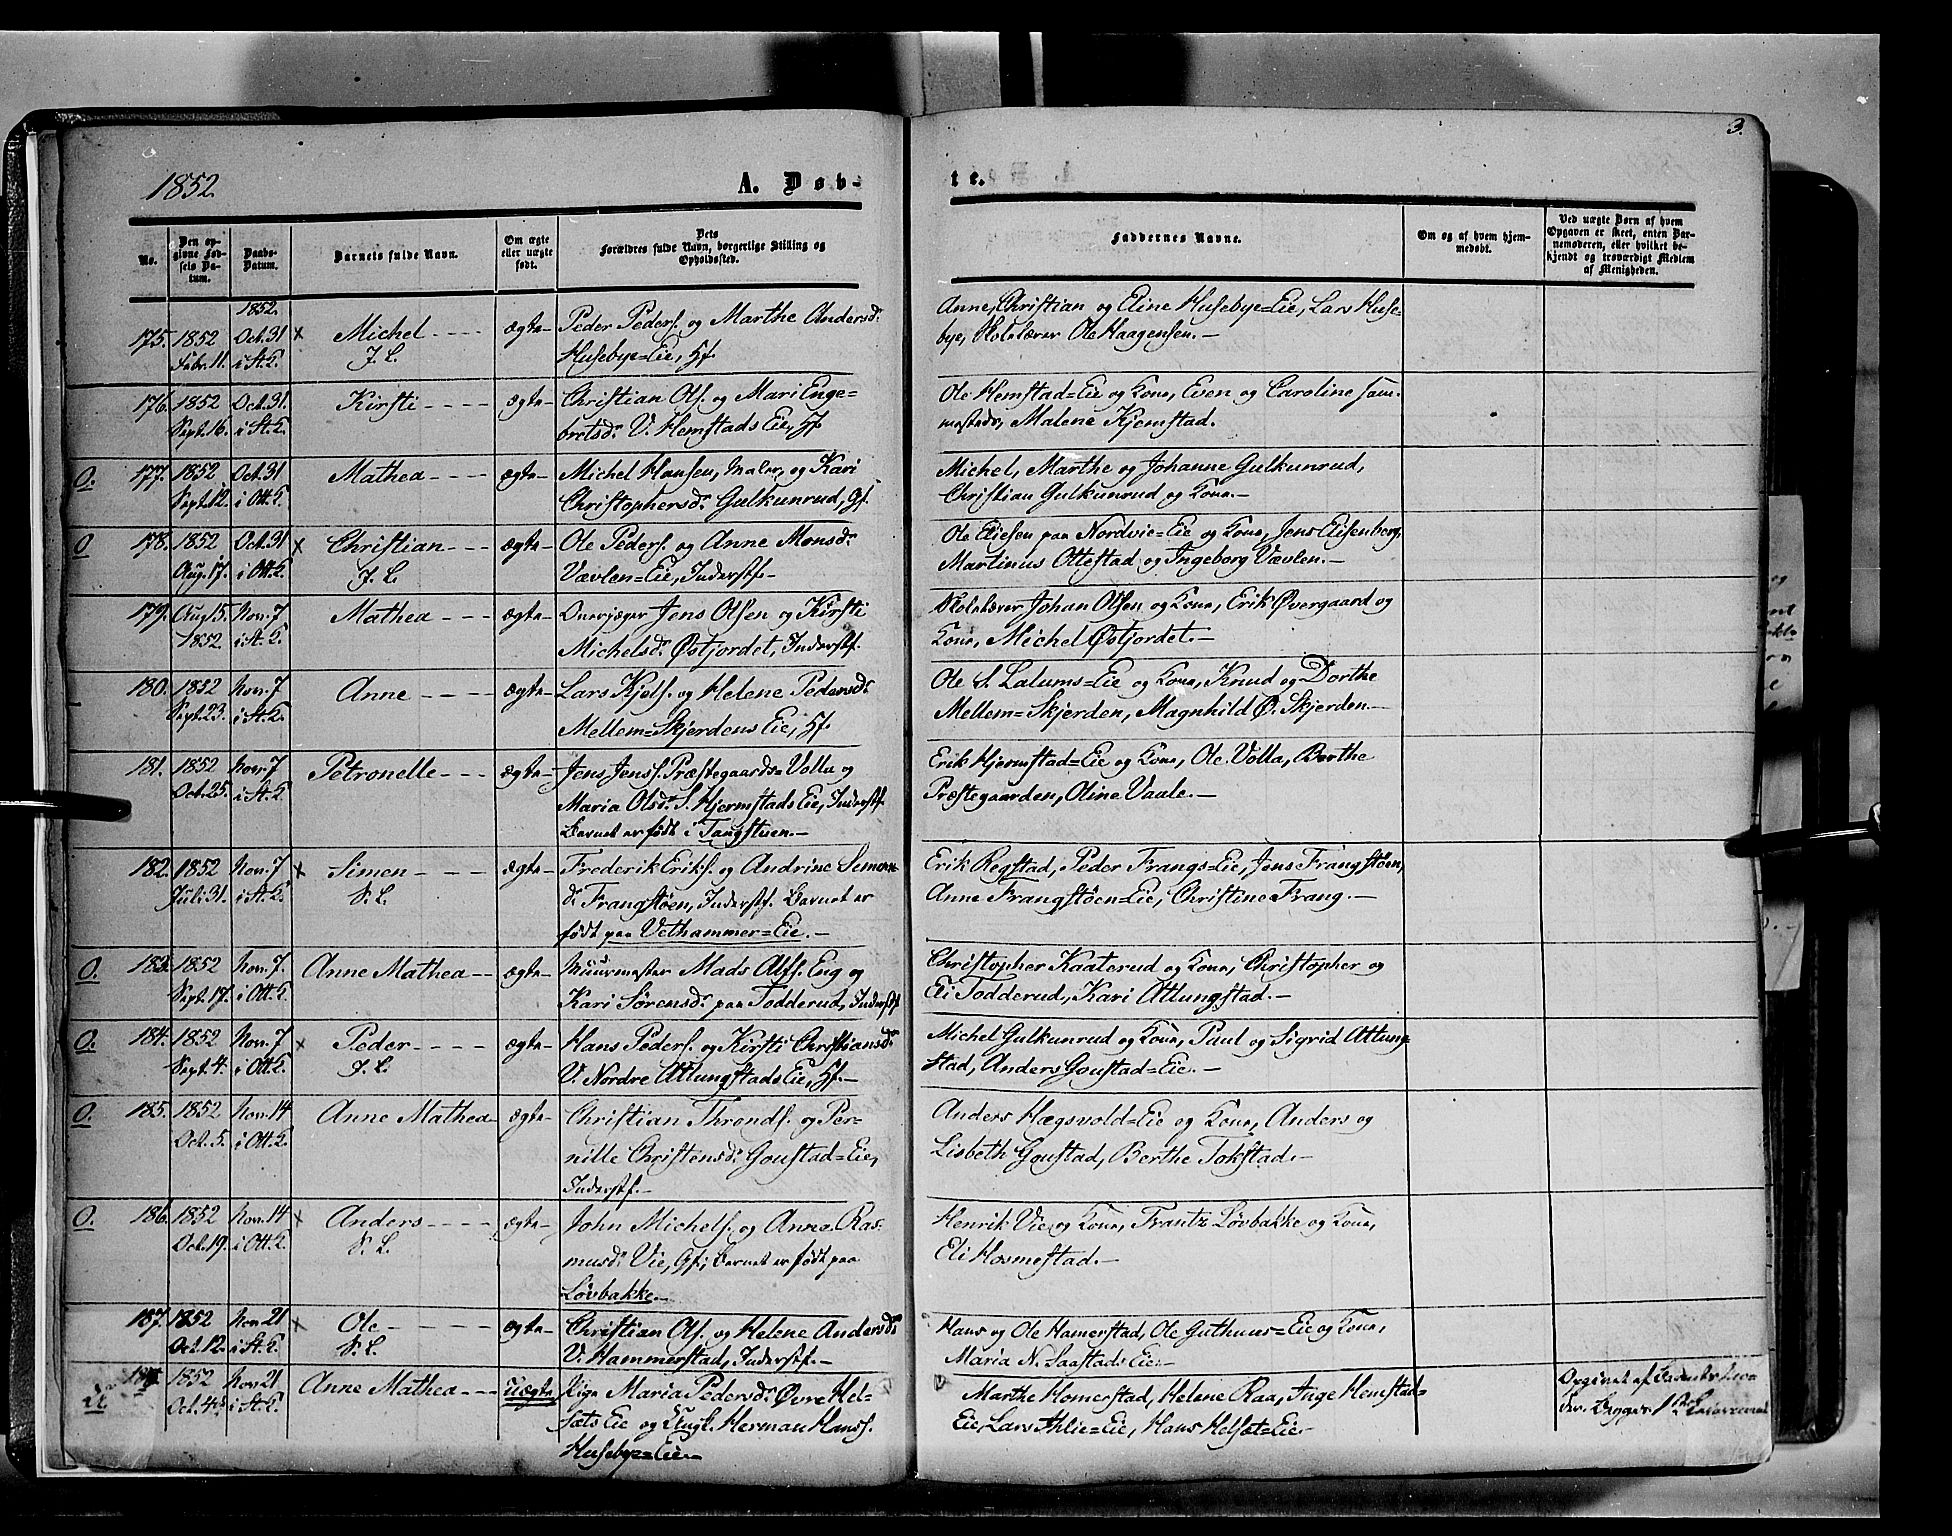 3.
1852.
A. Døb-
te.
No.
Den opgivne Fødsels Datum.
Daabs-Datum.
Barnets fulde Navn.
Om ægte eller uægte født.
Dets Forældres fulde Navn, borgerlige Stilling og Opholdssted.
Faddernes Navne.
Om og af hvem hjemmedøbt.
Ved uægte Børn af hvem Opgaven er skeet, enten Barnemoderen, eller hvilket bekjendt og troværdigt Medlem af Menigheden.
1852.
175. 1852 Oct. 31 x Michel ægte Peder Peders. og Marthe Andersd.
Febr. 11. i St. K. J. L. Husebye=Eie, Hf.
Anne, Christian og Eline Husebye=Eie, Lars Huse=
bye, Skolelærer Ole Haagensen.
176. 1852 Oct. 31. Kirsti ægte Christian Ols. og Mari Enge=
Sept. 16. i St. K. bretsd. V. Hemstads Eie, Hf.
Ole Hemstad=Eie og Kone, Even og Caroline Sam-
mestads, Malene Kjemstad.
O. 177. 1852 Oct. 31 Mathea ægte Michel Hansen, Maler, og Kari
Sept. 12. i Ott. K. Christophersd. Gulkunrud, Gf.
Michel, Marthe og Johanne Gulkunrud,
Christian Gulkunrud og Kone.
O 178. 1852 Oct. 31 x Christian ægte Ole Peders. og Anne Monsd.
Aug. 17. i Ott. K. J. L. Vævlen=Eie, Inderstf.
Ole Eliesen paa Nordvie=Eie og Kone, Jens Eisenberg,
Martinus Ottestad og Ingeborg Vævlen.
179. Aug. 15. Nov. 7 Mathea ægte Overjæger Jens Olsen og Kirsti
1852. i St. K. Michelsd. Østjordet, Inderstf.
Skolelærer Johan Olsen og Kone, Erik Øvergaard og
Kone, Michel Østjordet.
180. 1852 Nov. 7 Anne ægte Lars Kjels. og Helene Pedersd.
Sept. 23. i St. K. Mellem=Skjerdens Eie, Hf.
Ole S. Lalums=Eie og Kone, Knud og Dorthe
Mellem=Skjerden, Magnhild Ø. Skjerden.
181. 1852 Nov. 7 Petronelle ægte Jens Jens. Præstegaards=Volla og
Oct. 25. i St. K. Maria Olsd. S. Hjermstads Eie, Inderstf.
Barnet er født i Tangstuen.
Erik Hjermstad=Eie og Kone, Ole Volla, Berthe
Præstegaarden, Oline Vaale.
182. 1852 Nov. 7 x Simen ægte Frederik Eriks. og Andrine Simen-
Juli 31. i St. K. S. L. d. Frangstøen, Inderstf. Barnet er
født paa Vethammer=Eie.
Erik Regstad, Peder Frangs=Eie, Jens Frangstøen,
Anne Frangstøen=Eie, Christine Frang.
O. 183. 1852 Nov. 7. Anne Mathea ægte Muurmester Mads Alfs. Eng og
Sept. 17. i Ott. K. Kari Sørensd. paa Todderud, Inderstf.
Christopher Kaaterud og Kone, Christopher og
Eli Todderud, Kari Attungstad.
O. 184. 1852 Nov. 7 x Peder ægte Hans Peders. og Kirsti Christiansd.
Sept. 4. i Ott. K. J. L. V. Nordre Attungstads Eie, Hf.
Michel Gulkunrud og Kone, Paul og Sigrid Attung=
stad, Anders Goustad=Eie.
O. 185. 1852 Nov. 14 Anne Mathea ægte Christian Thronds. og Per-
Oct. 5. i Ott. K. nille Christensd. Goustad=Eie,
Inderstf.
Anders Hægsvold=Eie og Kone, Anders og
Lisbeth Goustad, Berthe Tokstad.
O. 186. 1852 Nov. 14 x Anders ægte John Michels. og Anne Ras=
Oct. 19. i Ott. K. S. L. musd. Vie, Gf; Barnet er født paa
Løvbakke.
Henrik Vie og Kone, Frantz Løvbakke og Kone,
Eli Hosmestad.
187. 1852 Nov. 21 x Ole ægte Christian Ols. og Helene Andersd.
Oct. 12. i St. K. S. L. V. Hammerstad, Inderstf.
Hans og Ole Hamerstad, Ole Guthuus=Eie og Kone,
Maria N. Saastads Eie.
1852 Nov. 21 Anne Mathea uægte Pige Maria Pedersd. Øvre Hel=
Oct. 4. i St. K. sæts Eie og Ungk. Herman Hanss.
Husebye=Eie.
Marthe Homerstad, Helene Raa, Inge Hemstad=
Eie, Lars Ahlie=Eie, Hans Helsæt=Eie.
Opgivet af